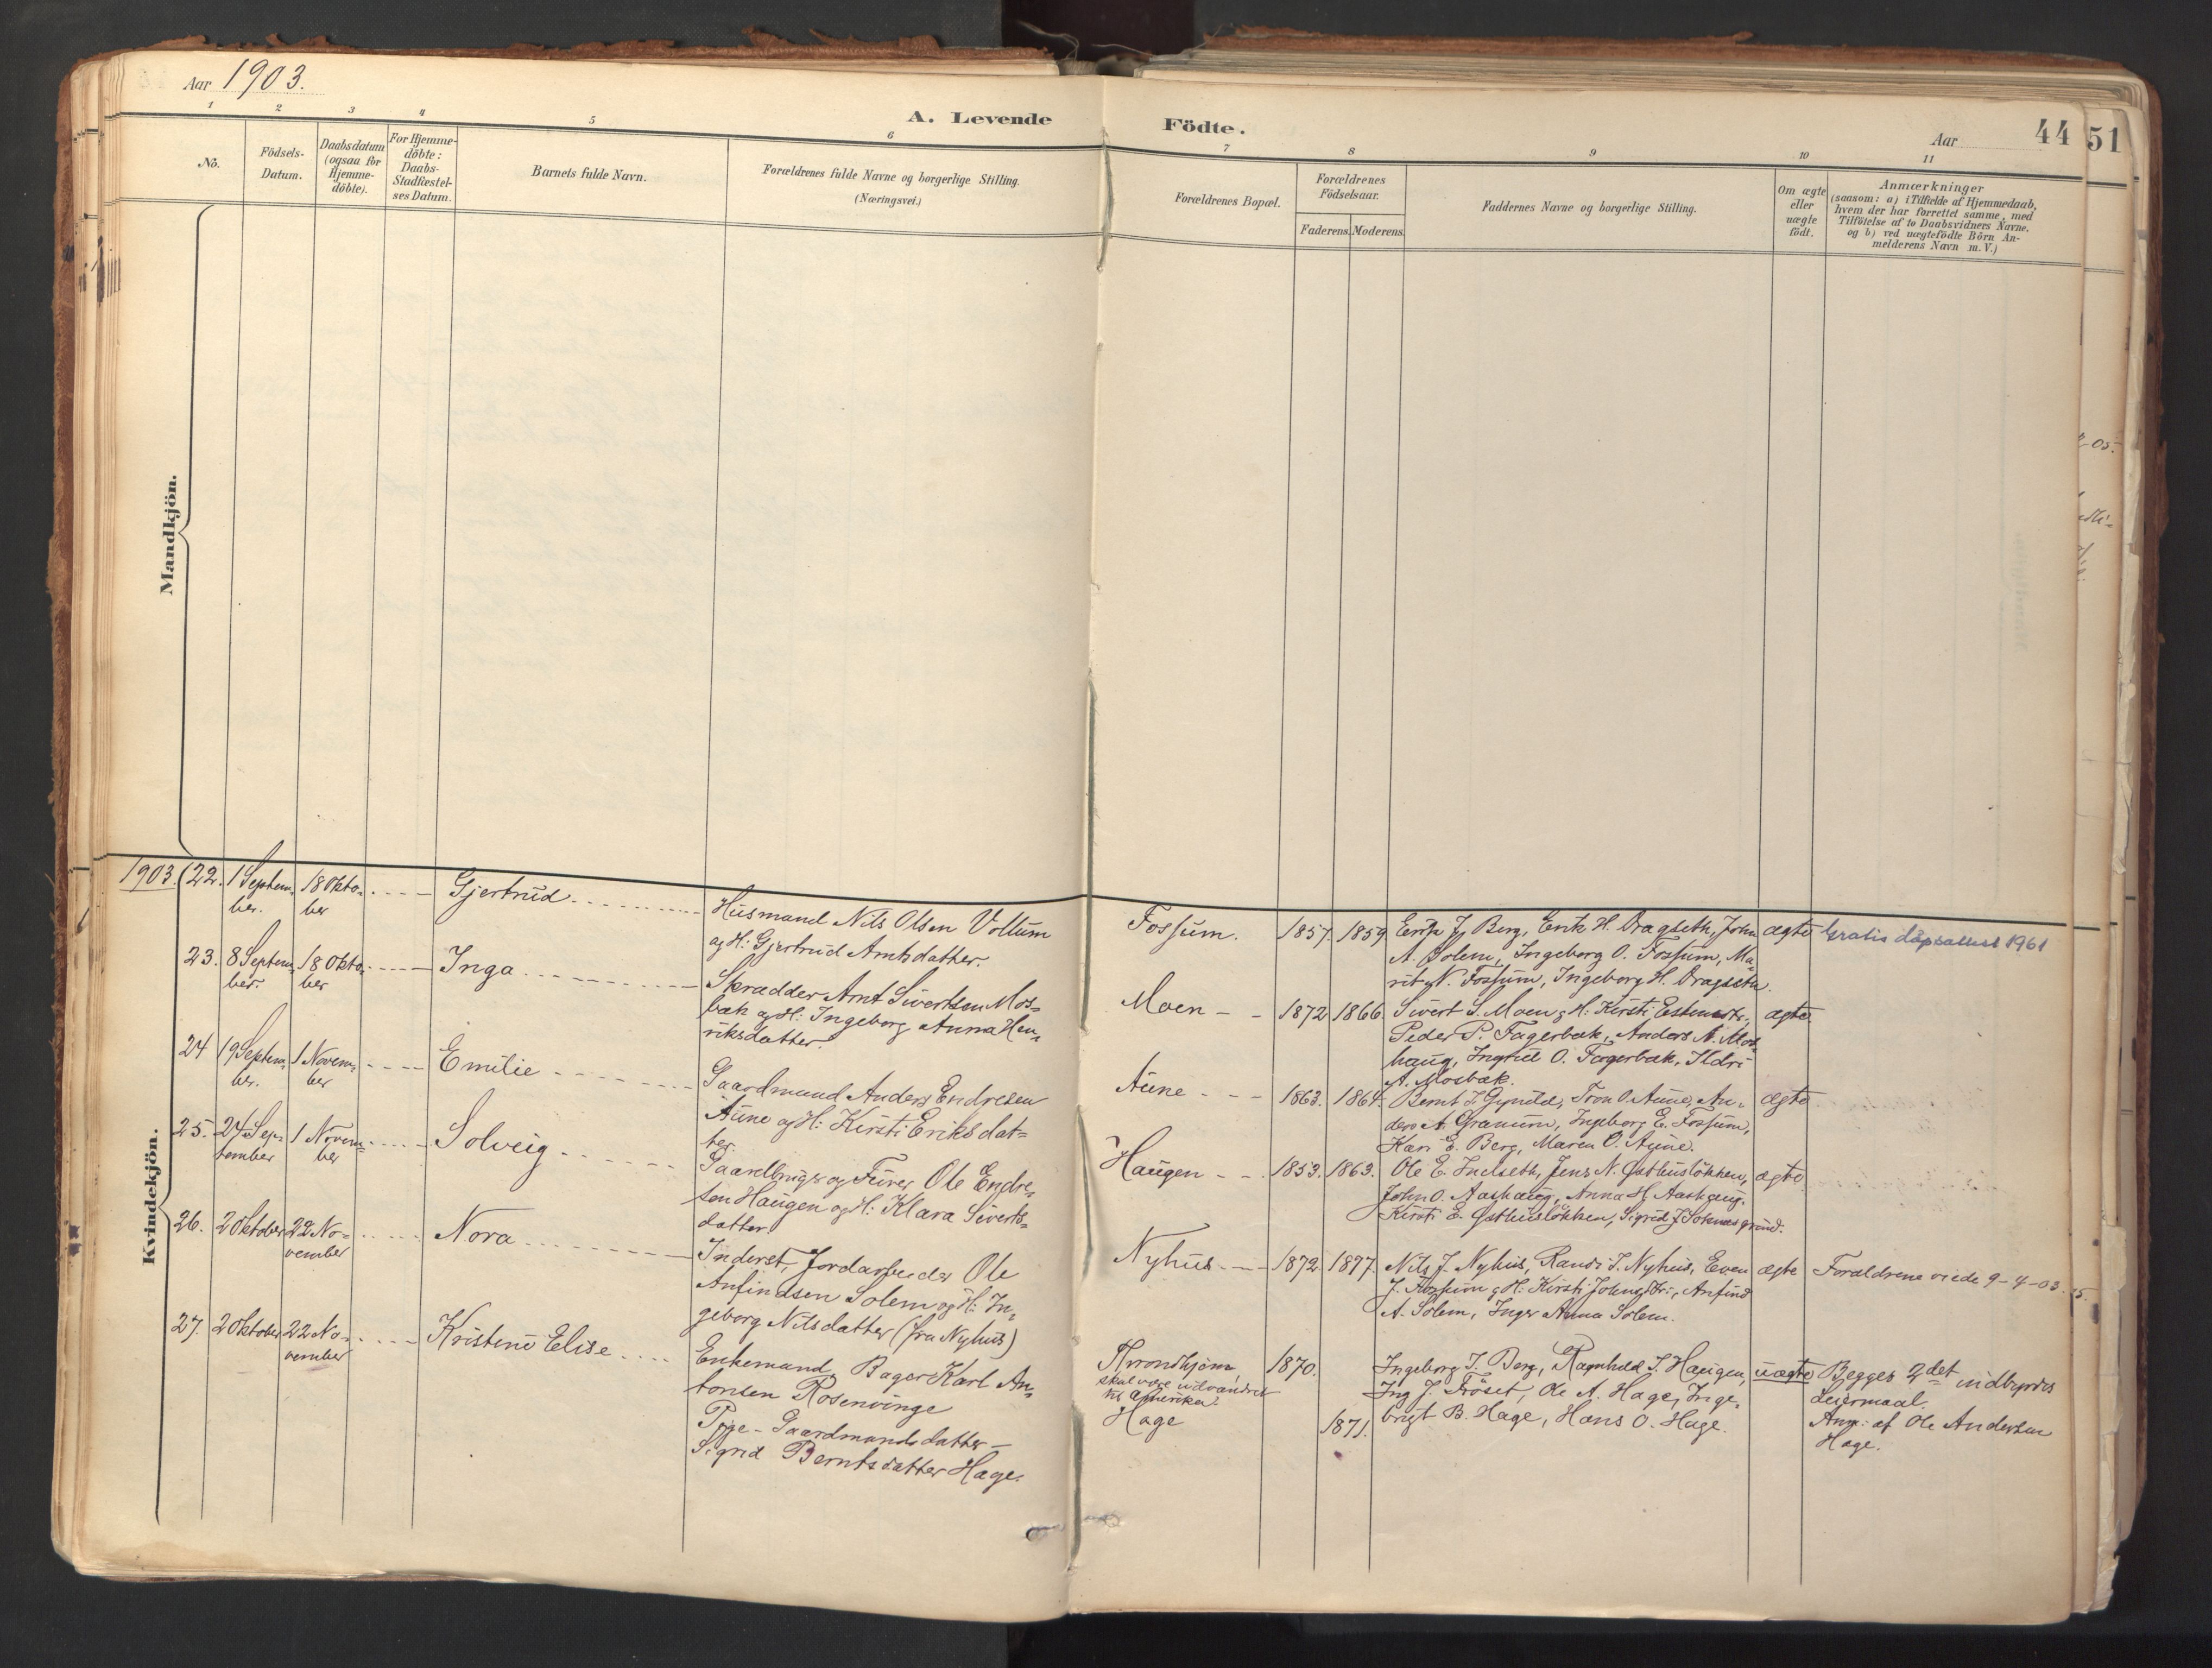 Aar 1903.
A. Levende
Födte.
Aar
44
51
1
2
3
4
5
6
7
8
9
10
11
No.
Födsels-
Datum.
Daabsdatum
(ogsaa for
Hjemme-
döbte).
For Hjemme-
döbte:
Daabs-
Stadfæstel-
ses Datum.
Barnets fulde Navn.
Forældrenes fulde Navne og borgerlige Stilling.
(Næringsvei.)
Forældrenes Bopæl.
Forældrenes
Födselsaar.
Faderens. Moderens.
Faddernes Navne og borgerlige Stilling.
Om ægte
eller
uægte
födt.
Anmærkninger
(saasom: a) i Tilfælde af Hjemmedaab,
hvem der har forrettet samme, med
Tilföielse af to Daabsvidners Navne,
og b) ved uægtefödte Börn An-
melderens Navn m. V.)
Mandkjön.
Kvindekjön.
1903. 22. 1 Septem-
ber.
18 Okto-
ber
Gjertrud
Husmand Nils Olsen Voltum
og H: Gjertrud Arntsdatter.
Fossum.
1857. 1859
J. Berg, Erik H. Dragseth, John
A. Solem, Ingeborg O. Fossum, Ma-
rit N. Fossum, Ingeborg H. Dragseth.
ægte
Gratis dåpsattest 1961
23. 8 Septem-
ber.
18 Okto-
ber
Inga
Skrædder Arnt Sivertsen Mos-
bæk og H: Ingeborg Anna Hen-
riksdatter.
Moen
1872 1866
Sivert S. Moen, H: Kirsti
Peder P. Fagerbæk, Anders A. Mos-
haug, Ingrid O. Fagerbæk, Ildri
A. Mosbæk.
ægte
24 19 Septem-
ber.
1 Novem-
ber
Emilie
Gaardmand Anders Endresen
Aune og H: Kirsti Eriksdat-
ter
Aune
1863. 1864.
Bernt Gynild, Tron O. Aune, An-
ders A. Granum, Ingeborg E. Fossum,
Kari E. Berg, Maren O. Aune.
ægte
25. 24 Sep-
tember
1 Novem-
ber
Solveig
Gaardbruger og Ole Endre-
sen Haugen og H: Klara Siverts-
datter.
Haugen
1853. 1863.
Ole E. Inelseth, Jens N. Østhusløkken,
John O. Aashaug, Anna H. Aashaug.
Kirsti E. Østhusløkken, Sigrid J.
ægte
26. 2 Oktober 22 No-
vember
Nora
Inderst, Jordarbeider Ole
Anfindsen Solem og H: In-
geborg Nilsdatter (fra Nyhus)
Nyhus
1872 1877.
Nils J. Nyhus, Randi I. Nyhus, Even
J. Fossum og H: Kirsti Johnsdtr., Anfind
A. Solem, Inger Anna Solem.
ægte
Forældrene viede 9-4-03.
27. 2 Oktober 22 No-
vember
Kristine Elise
Enkemand, Bager Karl An-
tonsen Rosenvinge
Pige - Gaardmandsdatter -
Sigrid Berntsdatter Hage.
Throndhjem,
skal være udvandret
til Amerika.
Hage
1870.
1871.
Ingeborg I. Berg, Ragnhild I. Haugen,
Ing. J. Frøset, Ole A. Hage, Inge-
brigt B. Hage, Hans O. Hage.
uægte
Begges 2det indbyrdes
Leiermaal.
Anm: af Ole Andersen
Hage.